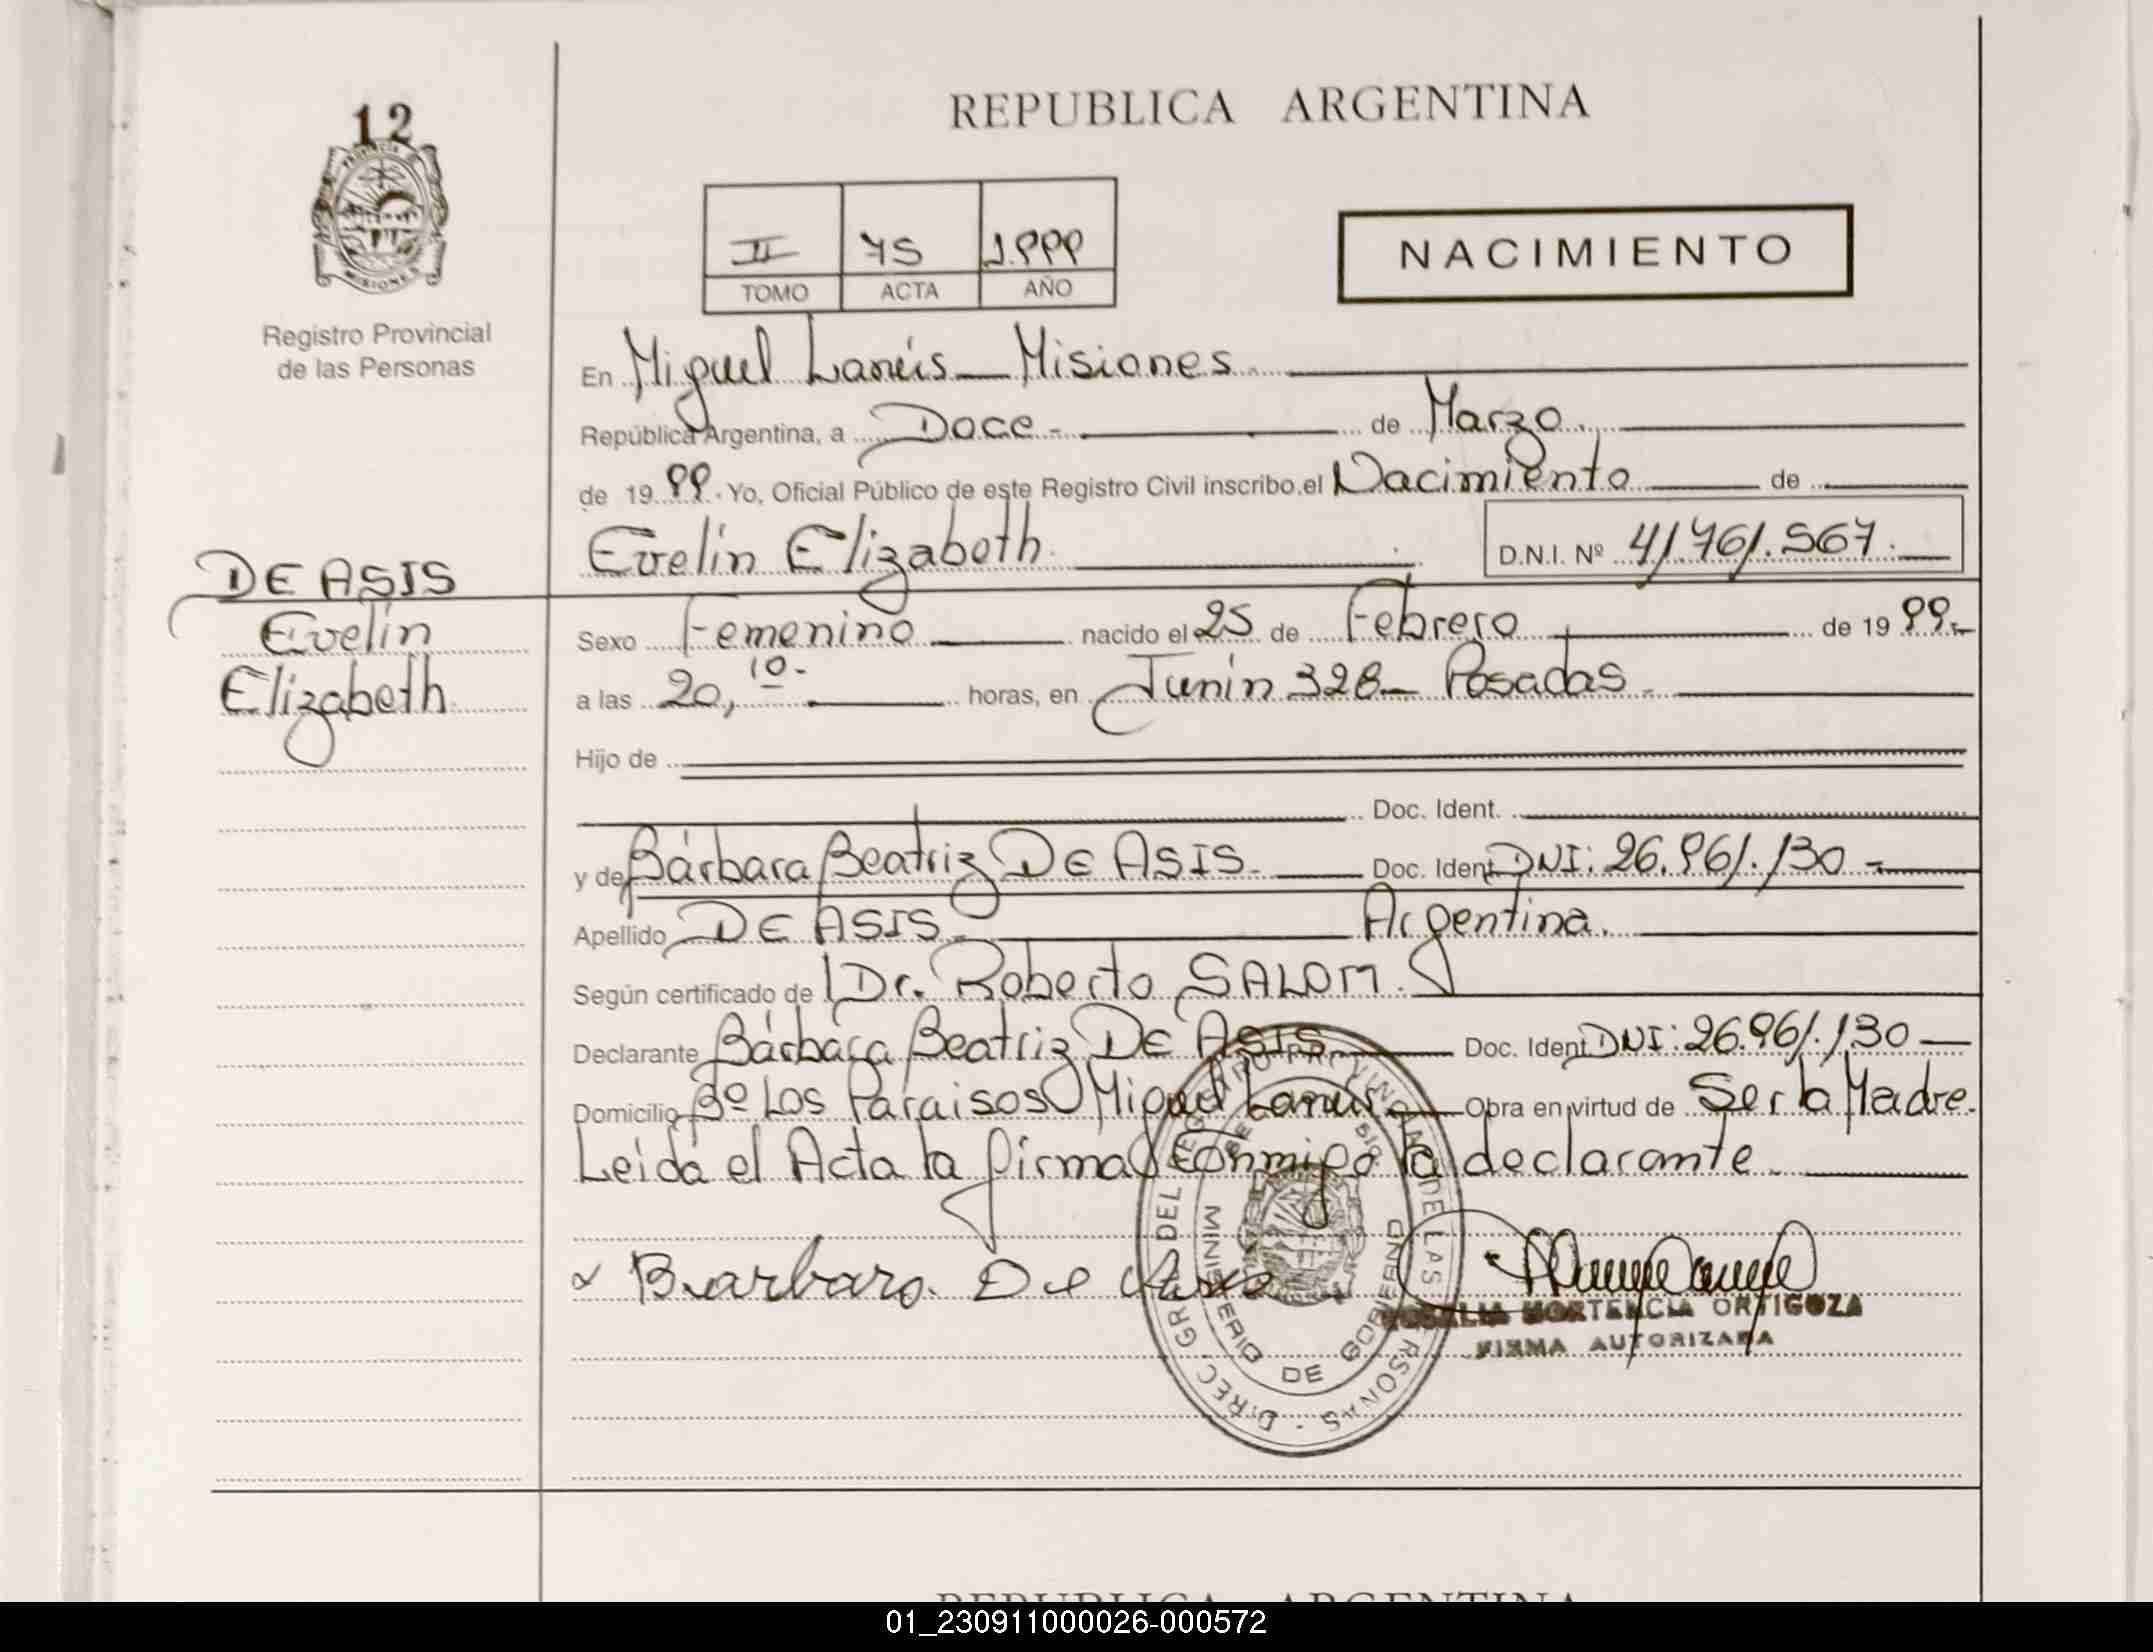 12
REPUBLICA ARGENTINA
II 75 1.999
TOMO ACTA AÑO
NACIMIENTO
Registro Provincial
de las Personas
En Miguel Lanús - Misiones.
República Argentina, a Doce - de Marzo.
de 1999. Yo, Oficial Público de este Registro Civil inscribo el Nacimiento de
Evelin Elizabeth. D.N.I. Nº 41.761.567.
DE ASIS
Evelin
Elizabeth.
Sexo Femenino nacido el 25 de Febrero de 1999.-
a las 20,10- horas, en Junín 328 - Posadas -
Hijo de
Doc. Ident.
y de Bárbara Beatriz DE ASIS - Doc. Ident DNI: 26.961.130 -
Apellido DE ASIS - Argentina.
Según certificado de Dr. Roberto SALOM.
Declarante Bárbara Beatriz DE ASIS Doc. Ident DNI: 26.961.130 -
Domicilio Bº Los Paraisos Miguel Lanús - Obra en virtud de Ser la Madre.
Leída el Acta la firma Conmigo la declarante -
Barbara De Asis
ROSALIA HORTENCIA ORTIGOZA
FIRMA AUTORIZADA
MINISTERIO DE GOBIERNO
REPUBLICA ARGENTINA
01_230911000026-000572